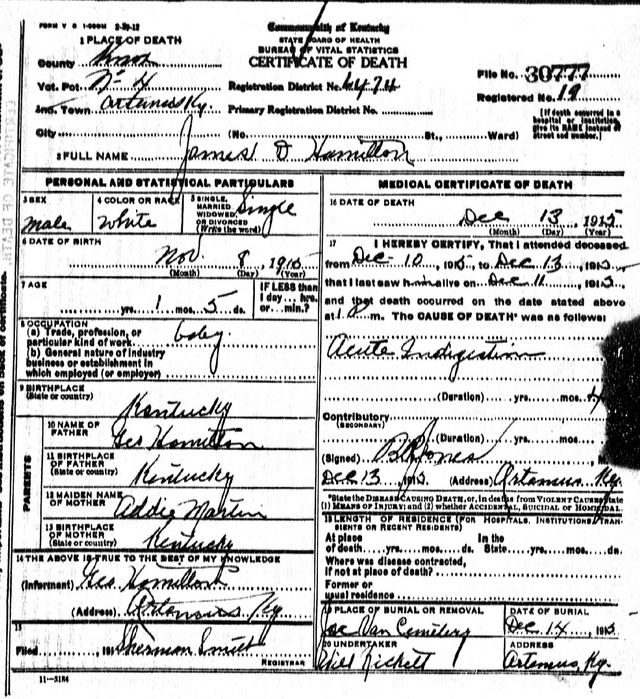 FORM V S 1-500M 2-29-12
Commonwealth of Kentucky
STATE BOARD OF HEALTH
BUREAU OF VITAL STATISTICS
CERTIFICATE OF DEATH
1 PLACE OF DEATH
County Knox
Vot. Pct. No 4
Inc. Town Artemus Ky.
City
Registration District No.
Primary Registration District No.
(No. St., Ward)
File No. 30777
Registered No. 19
[If death occurred in a hospital or institution, give its NAME instead of street and number.]
2 FULL NAME James D Hamilton
PERSONAL AND STATISTICAL PARTICULARS
3 SEX
male
4 COLOR OR RACE
White
5 SINGLE, MARRIED, WIDOWED, OR DIVORCED (Write the word)
Single
6 DATE OF BIRTH
Nov. 8, 1915
(Month) (Day) (Year)
7 AGE
yrs. 1 mos. 5 ds.
IF LESS than 1 day... hrs. or... min.?
8 OCCUPATION
(a) Trade, profession, or particular kind of work
(b) General nature of industry business or establishment in which employed (or employer)
9 BIRTHPLACE
(State or country)
Kentucky
PARENTS
10 NAME OF FATHER
Geo Hamilton
11 BIRTHPLACE OF FATHER
(State or country)
Kentucky
12 MAIDEN NAME OF MOTHER
Addie Martin
13 BIRTHPLACE OF MOTHER
(State or country)
Kentucky
14 THE ABOVE IS TRUE TO THE BEST OF MY KNOWLEDGE
(Informant) Geo Hamilton
(Address) Artemus Ky
15
Filed , 191
Sherman
REGISTRAR
11-3184
MEDICAL CERTIFICATE OF DEATH
16 DATE OF DEATH
Dec 13 1915
(Month) (Day) (Year)
17 I HEREBY CERTIFY, That I attended deceased
from Dec 10, 1915, to Dec 13, 1915,
that I last saw him alive on Dec 11, 1915,
and that death occurred on the date stated above
at m. The CAUSE OF DEATH* was as follows:
Acute Indigestion
(Duration) yrs. mos.
Contributory
(SECONDARY)
(Duration) yrs. mos.
(Signed) Jones
Dec 13, 1915 (Address) Artemus, Ky.
*State the DISEASE CAUSING DEATH, or, in deaths from VIOLENT CAUSES, state
(1) MEANS OF INJURY; and (2) whether ACCIDENTAL, SUICIDAL or HOMICIDAL.
18 LENGTH OF RESIDENCE (FOR HOSPITALS, INSTITUTIONS, TRANSIENTS OR RECENT RESIDENTS)
At place of death yrs. mos. ds. In the State yrs. mos. ds.
Where was disease contracted, if not at place of death?
Former or usual residence
19 PLACE OF BURIAL OR REMOVAL
Joe Van Cemetery
DATE OF BURIAL
Dec. 14, 1915
20 UNDERTAKER
ADDRESS
Artemus, Ky.